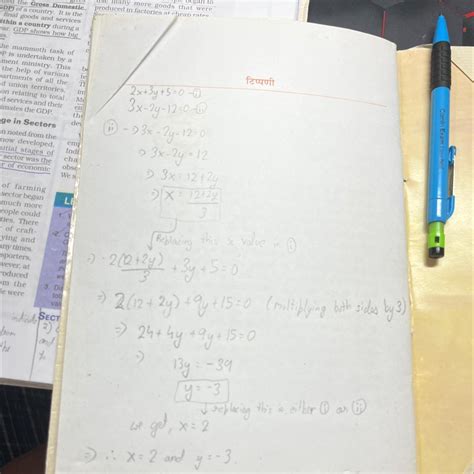 ted the Gross Domestic
GDP) of a country. It is the
final goods and services
within a country during a
year. GDP shows how big
the mammoth task of
DP is undertaken by a
ment ministry. This
the help of various
artments of all the
d union territories,
on relating to total
d services and their
timates the GDP.
ge in Sectors
noted from the
now developed,
itial stages of
sector was the
of economic
of farming
sector began
much more
eople could
ties. There
of craft-
ying and
any times.
sporters,
owever, at
roduced
m the
le were
that many more goods that were
produced in factories at cheap rates
टिप्पणी
2x+3y+5=0 -(i)
3x-2y-12=0 -(ii)
(ii) -> 3x-2y-12=0
=> 3x-2y=12
=> 3x=12+2y
=> x = (12+2y)/3
Replacing this x value in (i)
=> 2(12+2y)/3 + 3y+5=0
=> 2(12+2y)+9y+15=0 (multiplying both sides by 3)
=> 24+4y+9y+15=0
=> 13y=-39
y=-3
replacing this in either (i) or (ii)
we get, x=2
=> ∴ x=2 and y=-3.